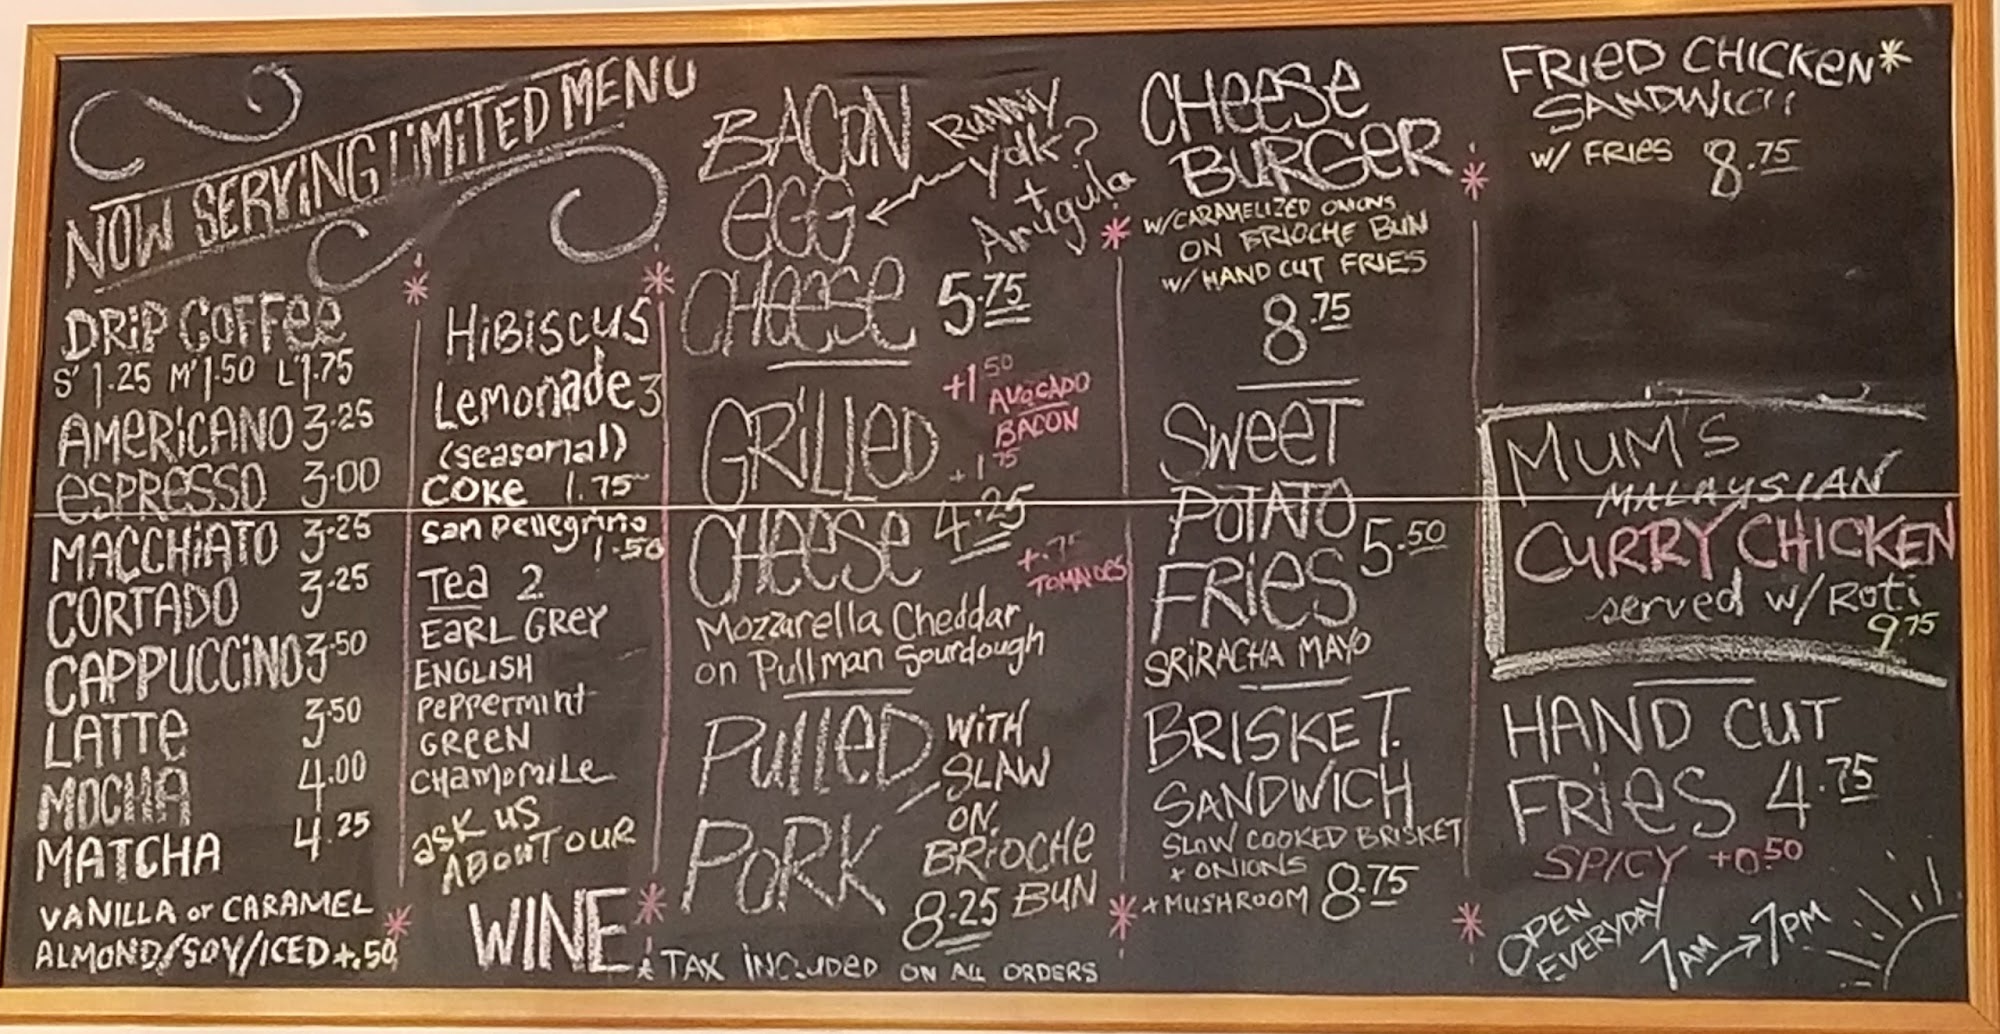 NOW SERVING LIMITED MENU
DRIP COFFEE
S' 1.25 M' 1.50 L' 1.75
AMERICANO 3.25
ESPRESSO 3.00
MACCHIATO 3.25
CORTADO 3.25
CAPPUCCINO 3.50
LATTE 3.50
MOCHA 4.00
MATCHA 4.25
VANILLA or CARAMEL
ALMOND/SOY/ICED +.50
HIBISCUS
Lemonade 3
(seasonal)
COKE 1.75
San Pellegrino
1.50
Tea 2
EARL GREY
ENGLISH
PEPPERMINT
GREEN
CHAMOMILE
ASK US
ABOUT OUR
WINE
BACON
EGG
CHEESE 5.75
RUNNY
Yolk?
+
Arugula
+1.50
AVOCADO
BACON
GRILLED
+1.75
CHEESE 4.25
+.75
TOMATOES
Mozzarella Cheddar
on Pullman Sourdough
Pulled
PORK
WITH
SLAW
ON
BRIOCHE
BUN
8.25
* TAX INCLUDED ON ALL ORDERS
CHEESE
BURGER
W/CARAMELIZED ONIONS
ON BRIOCHE BUN
W/ HAND CUT FRIES
8.75
SWEET
POTATO
FRIES 5.50
SRIRACHA MAYO
BRISKET
SANDWICH
SLOW COOKED BRISKET
+ ONIONS
+ MUSHROOM 8.75
FRIED CHICKEN*
SANDWICH
W/ FRIES 8.75
MUM'S
MALAYSIAN
CURRY CHICKEN
served w/ Roti
9.75
HAND CUT
FRIES 4.75
SPICY +0.50
OPEN
EVERYDAY
7AM → 7PM